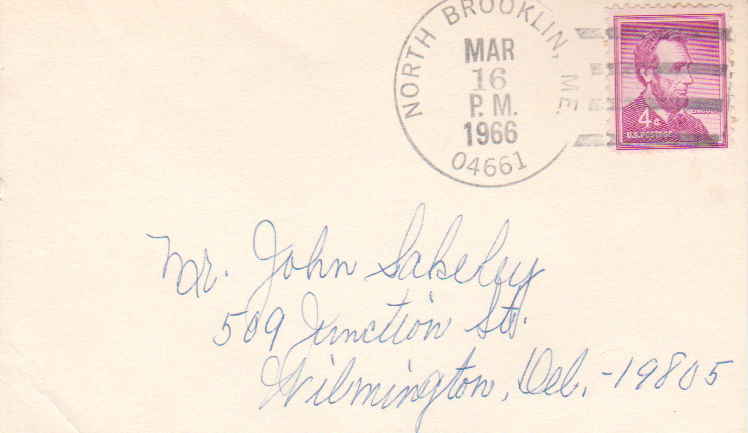 NORTH BROOKLIN, ME.
MAR
16
P.M.
1966
04661
LINCOLN
4¢
U.S. POSTAGE
Mr. John Sakeley
509 Junction St.
Wilmington, Del. - 19805